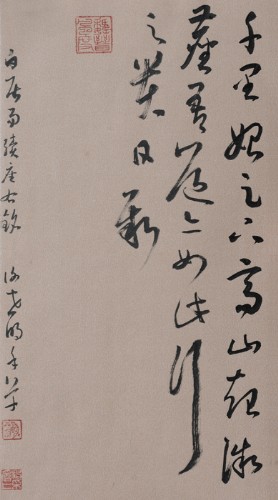 千里始足下高山起微
塵吾道亦如此行
之貴日新
白居易續座右銘